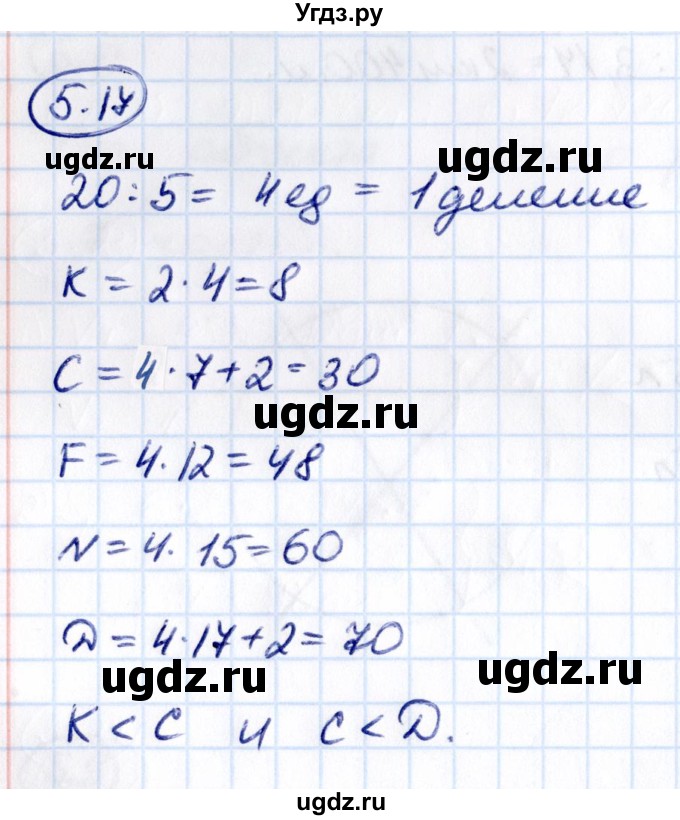 Угдз.ру
5.17
ugdz.ru
ugdz.ru
20:5= 4ед = 1деление
K = 2·4=8
C = 4·7+2=30
ugdz.ru
F = 4·12=48
N = 4·15=60
D = 4·17+2=70
ugdz.ru
ugdz.ru
K < C и C < D.
ugdz.ru